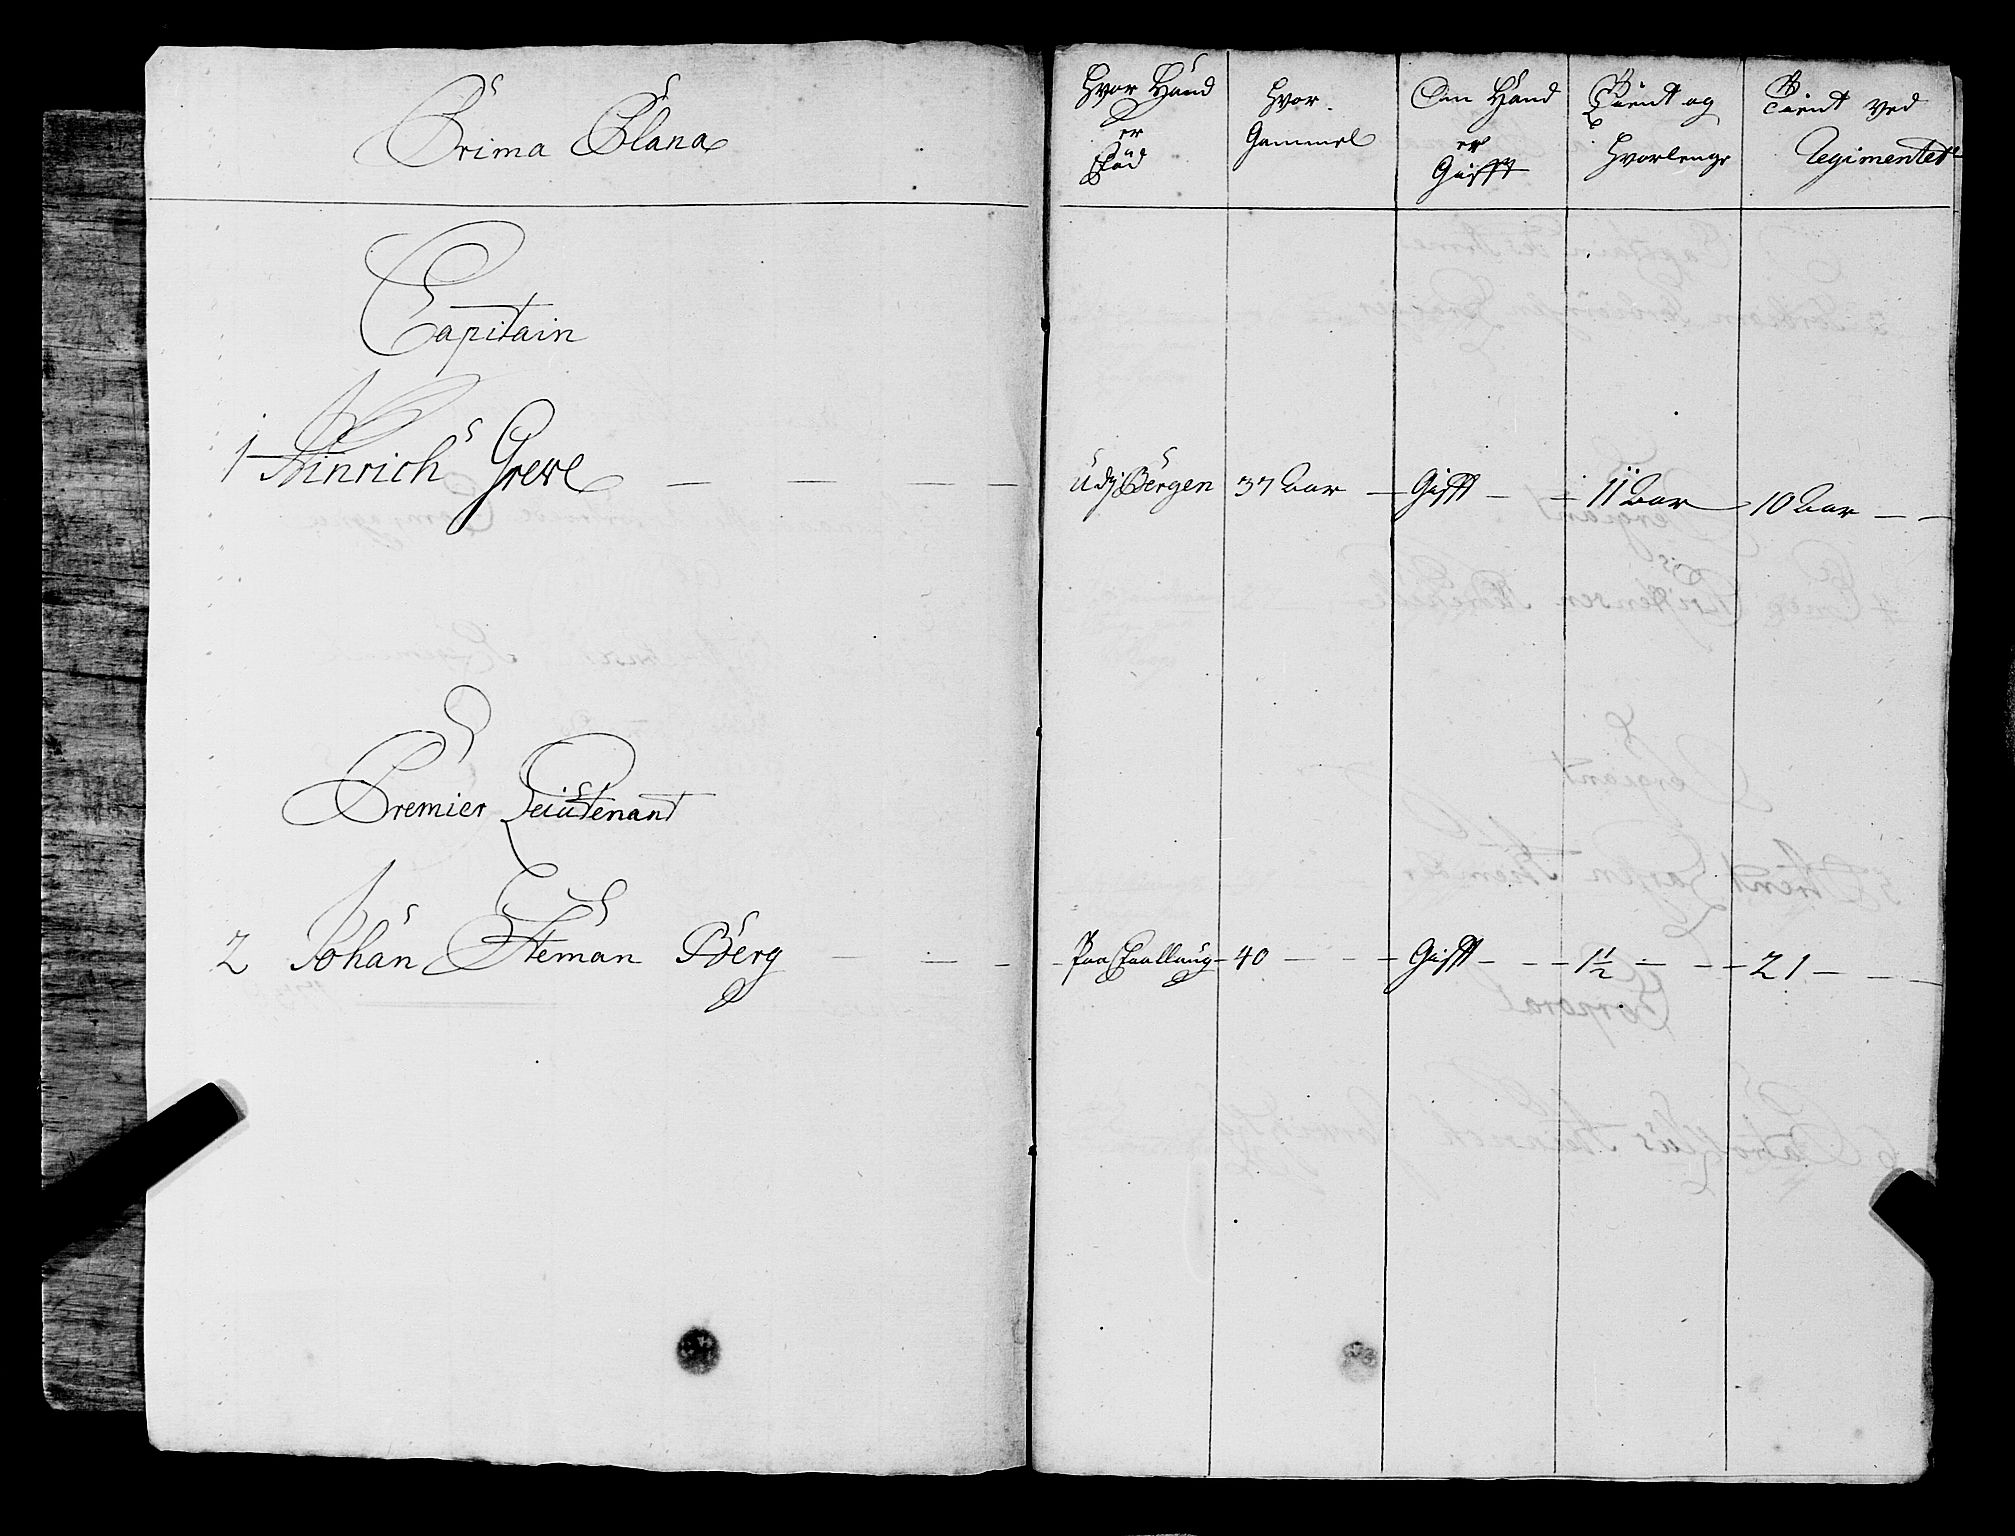 Prima Plana
Capitain
1 Hinrich Greve
Premier Leiutenant
2 Johan Steman Berg
Hvor Hand er Föd
Hvor Gammel
Om Hand er Gifft
Tient og Hvorlenge
Tient ved Regimentet
Udj Bergen 37 Aar Gifft 11 Aar 10 Aar
Paa 40 Gifft 1 1/2 21